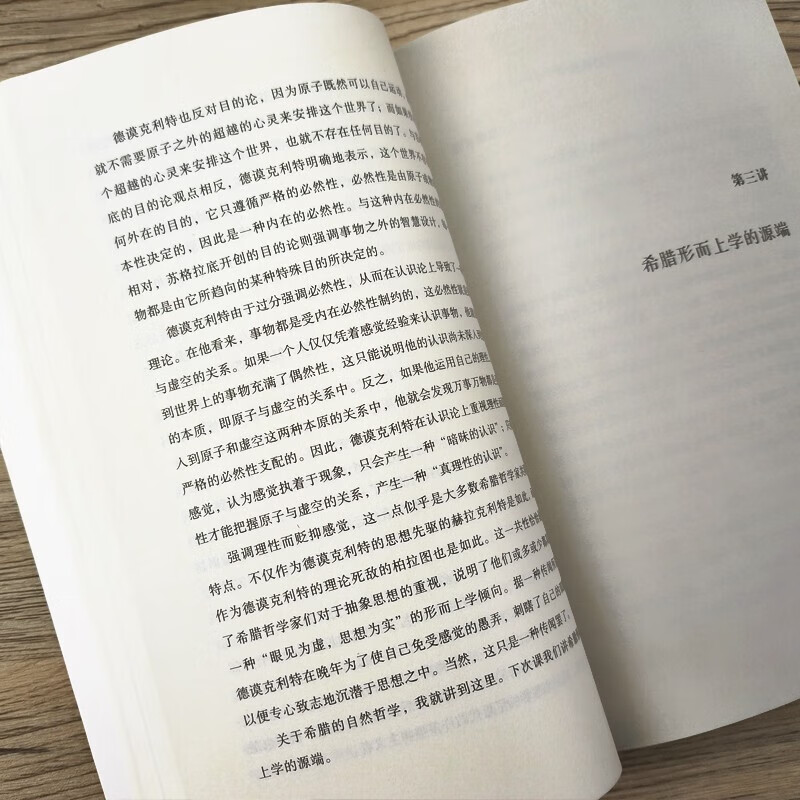 德谟克利特也反对目的论，因为原子既然可以自己运动，
就不需要原子之外的超越的心灵来安排这个世界了；而如果
个超越的心灵来安排这个世界，也就不存在任何目的了。与
底的目的论观点相反，德谟克利特明确地表示，这个世界不
何外在的目的，它只遵循严格的必然性，必然性是由原子
本性决定的，因此是一种内在的必然性。与这种内在必然性
相对，苏格拉底开创的目的论则强调事物之外的智慧设计，
物都是由它所趋向的某种特殊目的所决定的。
德谟克利特由于过分强调必然性，从而在认识论上导致了一
理论。在他看来，事物都是受内在必然性制约的，这必然性就
与虚空的关系。如果一个人仅仅凭着感觉经验来认识事物，他
到世界上的事物充满了偶然性，这只能说明他的认识尚未深入
的本质，即原子与虚空的关系中。反之，如果他运用自己的理性
人到原子和虚空这两种本原的关系中，他就会发现万事万物都
严格的必然性支配的。因此，德谟克利特在认识论上重视理性
感觉，认为感觉执着于现象，只会产生一种“暗昧的认识”；
性才能把握原子与虚空的关系，产生一种“真理性的认识”。
强调理性而贬抑感觉，这一点似乎是大多数希腊哲学家
特点。不仅作为德谟克利特的思想先驱的赫拉克利特是如此，
作为德谟克利特的理论死敌的柏拉图也是如此。这一共性
了希腊哲学家们对于抽象思想的重视，说明了他们或多或少
一种“眼见为虚，思想为实”的形而上学倾向。据一种传闻
德谟克利特在晚年为了使自己免受感觉的愚弄，刺瞎了自己的
以便专心致志地沉潜于思想之中。当然，这只是一种传闻罢了。
关于希腊的自然哲学，我就讲到这里。下次课我们讲希腊
上学的源端。
第三讲
希腊形而上学的源端